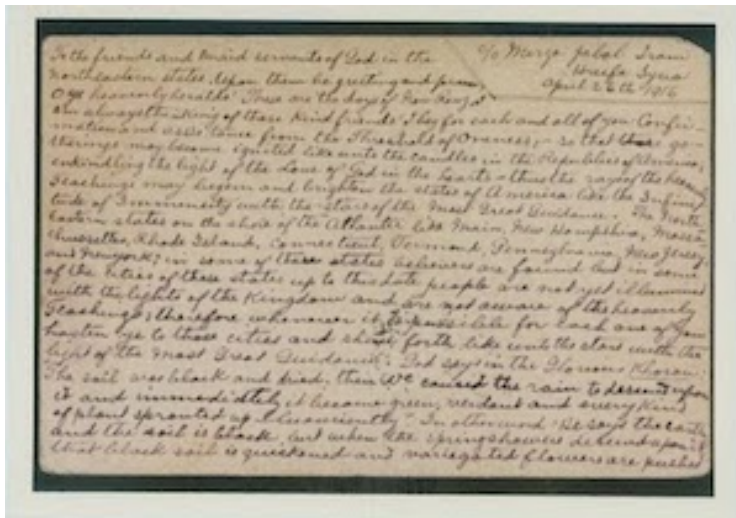 To the friends and maid servants of God in the
Northeastern states. Upon them be greeting and praise
c/o Mirza Jalal Irani
Haifa Syria
April 26th 1916
O ye heavenly heralds! These are the days of Naw Rooz. I
am always thinking of those kind friends & beg for each and all of you Confir-
mation and assistance from the Threshold of Oneness,- so that those ga-
therings may become ignited like unto the candles in the Republics of America,
enkindling the light of the Love of God in the hearts - thus the rays of the heavenly
Teachings may begem and brighten the states of America like the Infini-
tude of Immensity with the stars of the Most Great Guidance. The North
Eastern states on the shore of the Atlantic like Main, New Hampshire, Massa-
chusettes, Rhode Island, Connecticut, Vermond, Pennsylvania, New Jersey,
and New york; in some of these states believers are found but in some
of the cities of these states up to this date people are not yet illumined
with the lights of the Kingdom and are not aware of the heavenly
Teachings; therefore whenever it is possible for each one of you
hasten ye to those cities and shine forth like unto the stars with the
light of the Most Great Guidance. God says in the Glorious Khoran:
The soil was black and dried, then We caused the rain to descend upon
it and immediately it became green, verdant and every kind
of plant sprouted up luxuriently." In other word He says the earth
and the soil is black, but when the spring showers descend upon it
that black soil is quickened and variegated flowers are pushed